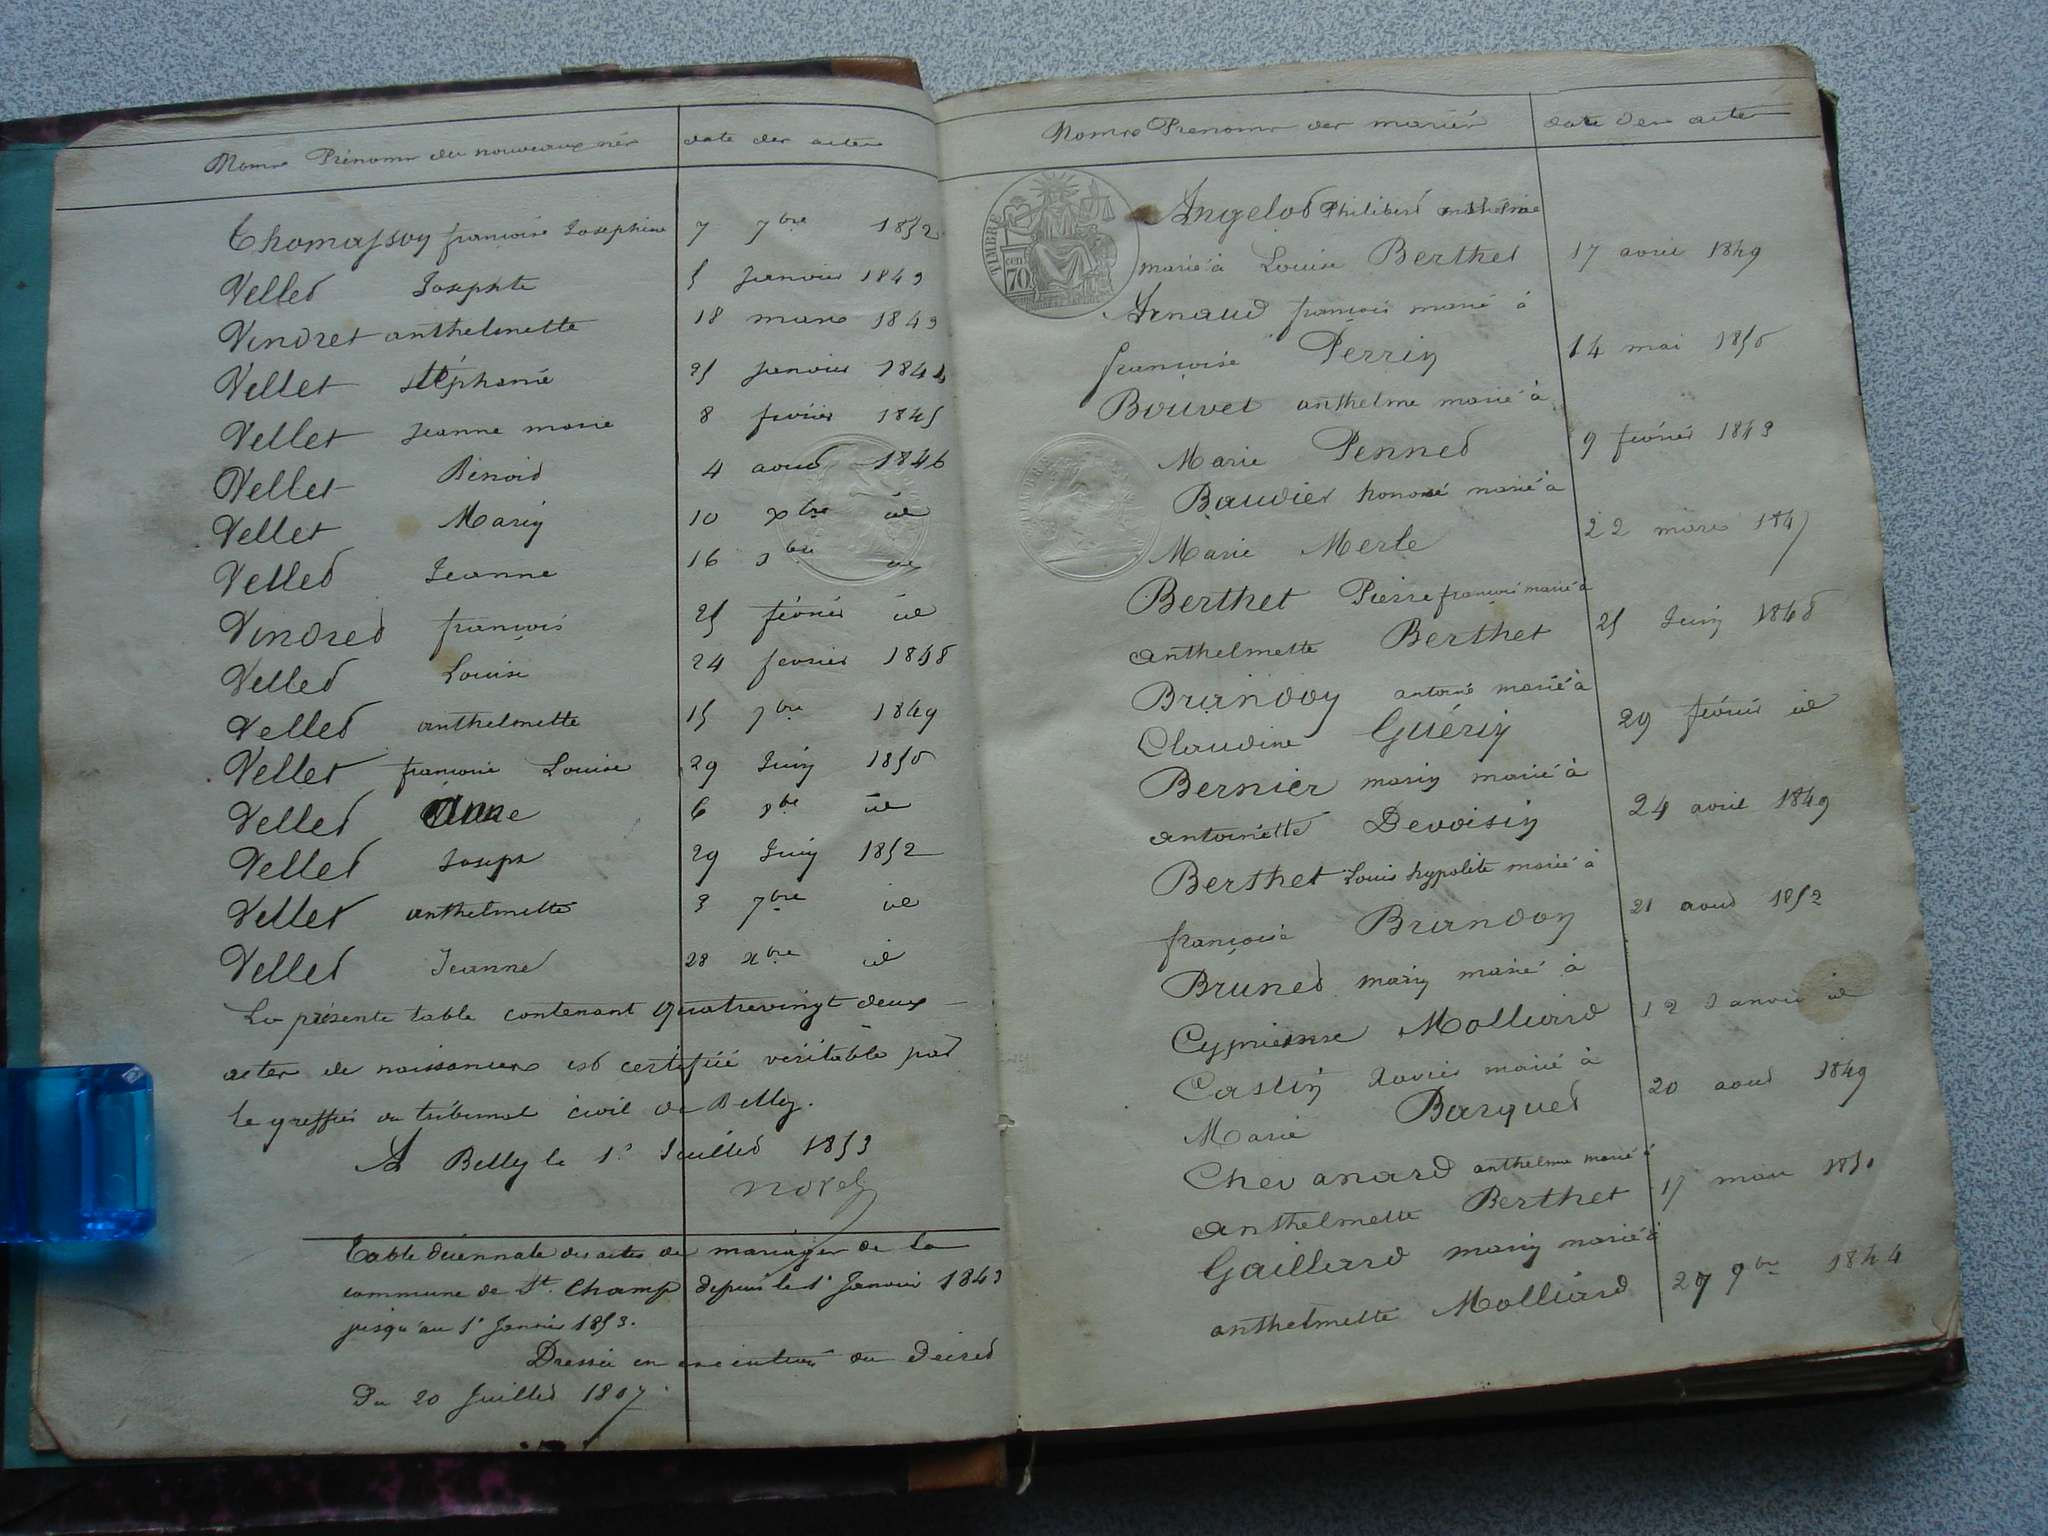 Noms Prénoms des nouveaux nés date des actes
Thomasson françoise Josephine 7 7bre 1852
Vellet Josephte 5 Janvier 1843
Vindret anthelmette 18 mars 1843
Vellet stéphanie 25 Janvier 1844
Vellet Jeanne marie 8 fevrier 1845
Vellet Benoit 4 aout 1846
Vellet Marin 10 xbre id
Vellet Jeanne 16 bre id
Vindret françois 25 février id
Vellet Louise 24 fevrier 1848
Vellet anthelmette 15 7bre 1849
Vellet francoise Louise 29 Juin 1850
Vellet Anne 6 8bre id
Vellet Joseph 29 Juin 1852
Vellet anthelmette 3 7bre id
Vellet Jeanne 28 xbre id
La présente table contenant quatrevingt deux
actes de naissances est certifiée véritable par
le greffier du tribunal civil de Belley.
A Belley le 1r Juillet 1853
Table décennale des actes de mariages de la
commune de St. Champ depuis le 1r Janvier 1843
jusqu'au 1r Janvier 1853.
Dressée en execution du décret
Du 20 Juillet 1807.
Noms Prenoms des mariés date des actes
TIMBRE
70 cen
Angelot Philibert anthelme
marié à Louise Berthet 17 avril 1849
Arnaud françois marié à
françoise Perrin 14 mai 1850
Bouvet anthelme marié à
Marie Pennet 9 février 1843
Bauvier honoré marié à
Marie Merle 22 mars 1847
Berthet Pierre françois marié à
anthelmette Berthet 25 Juin 1848
Brandon antoine marié à
Claudine Guérin 29 février id
Bernier marin marié à
antoinette Devoisin 24 avril 1849
Berthet Louis hypolite marié à
françoise Brandon 21 aout 1852
Brunet marin marié à
Cyprienne Molliard 12 Janvier id
Castin Xavier marié à
Marie Barquet 20 aout 1849
Chevanard anthelme marié à
anthelmette Berthet 17 mai 1851
Gaillard marin marié à
anthelmette Molliard 27 9bre 1844